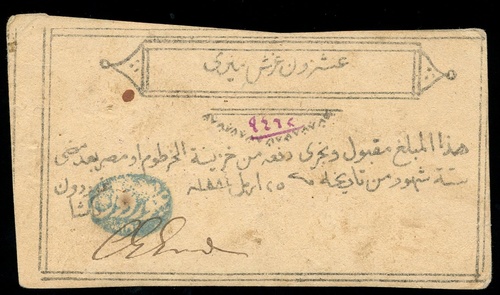 عشرون غرش ميرى
٩٤٦٢
هذا المبلغ مقبول ويجرى دفعه من خزينة الخرطوم او مصر بعد مضى
ستة شهور من تاريخه ٢٥ ابريل ١٨٨٤
غوردون
باشا